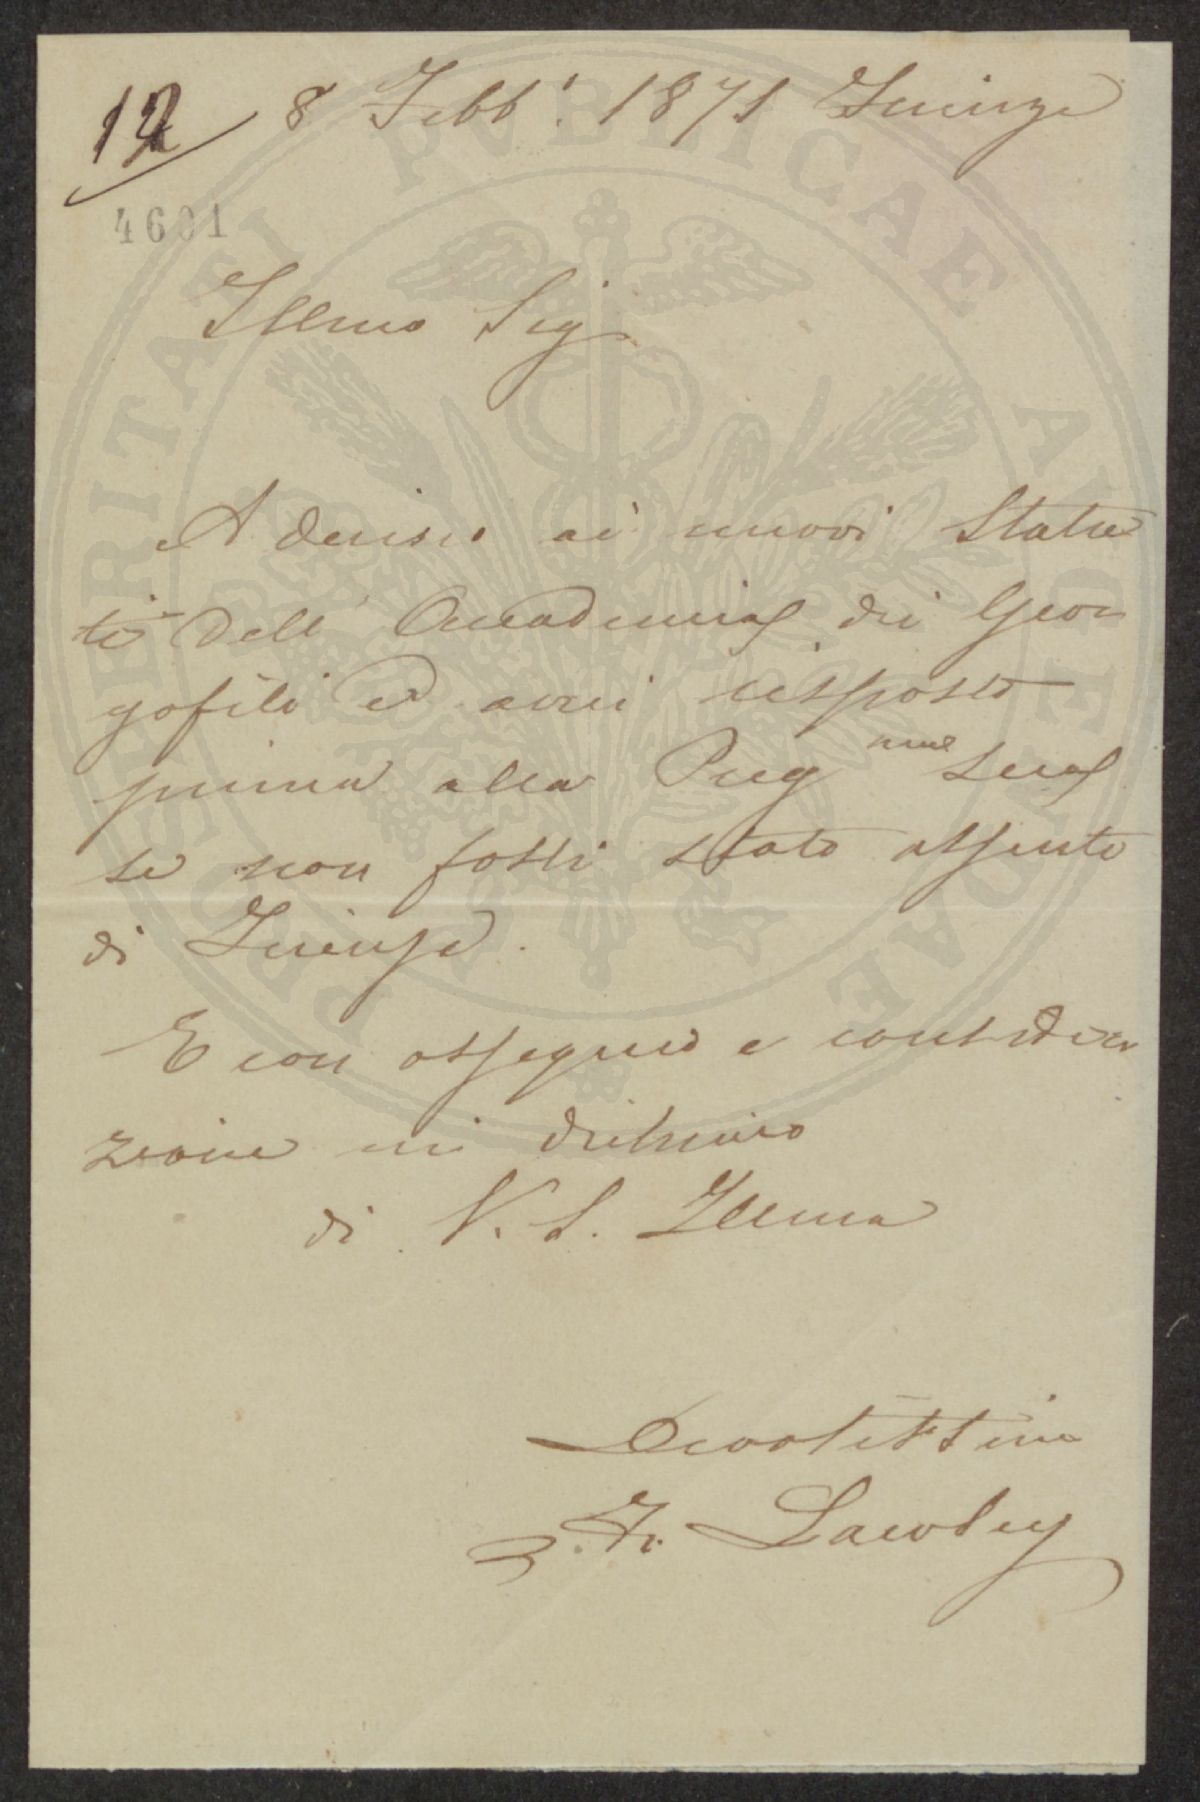 12
8 Febb: 1871 Firenze
4601
Illmo Sig
Aderisco ai nuovi Statu
ti dell' Accademia dei Geor
gofili ed avrei risposto
prima alla Preg ma sua
se non fossi stato assente
di Firenze.
E con ossequio e considera
zione mi dichiaro
di V. S. Illma
Devotissimo
F. Lawley
PROSPERITATI PVBLICAE AVGENDAE